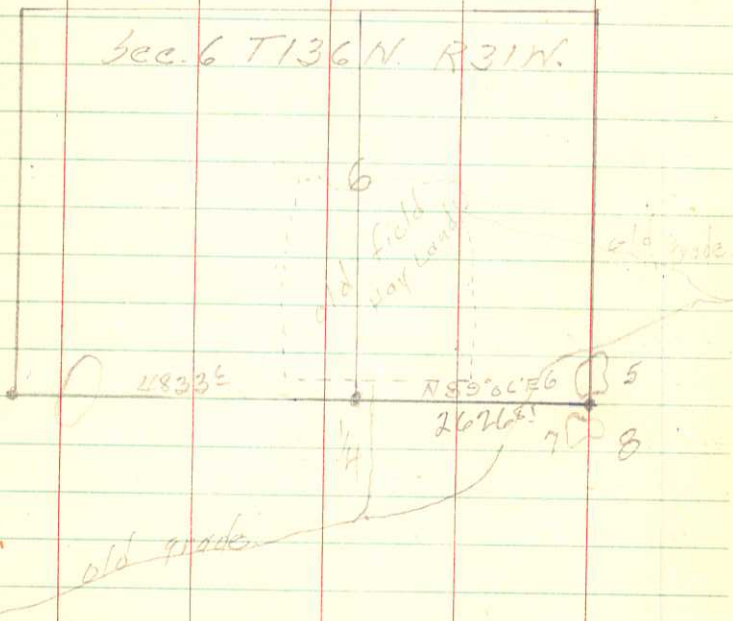 Sec. 6 T136N. R31W.
6
old field
old grade
4833⁶
N89°06'E
6
5
2626⁸!
1/4
7
8
old grade